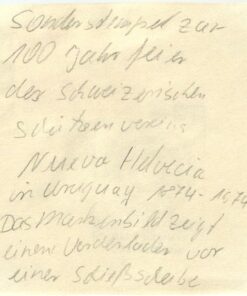 Sonderstempel zur
100 Jahrfeier
des Schweizerischen
Schützenvereins
Nueva Helvecia
in Uruguay 1874-1974
Das Markenbild zeigt
einen Vorderlader vor
einer Schießscheibe